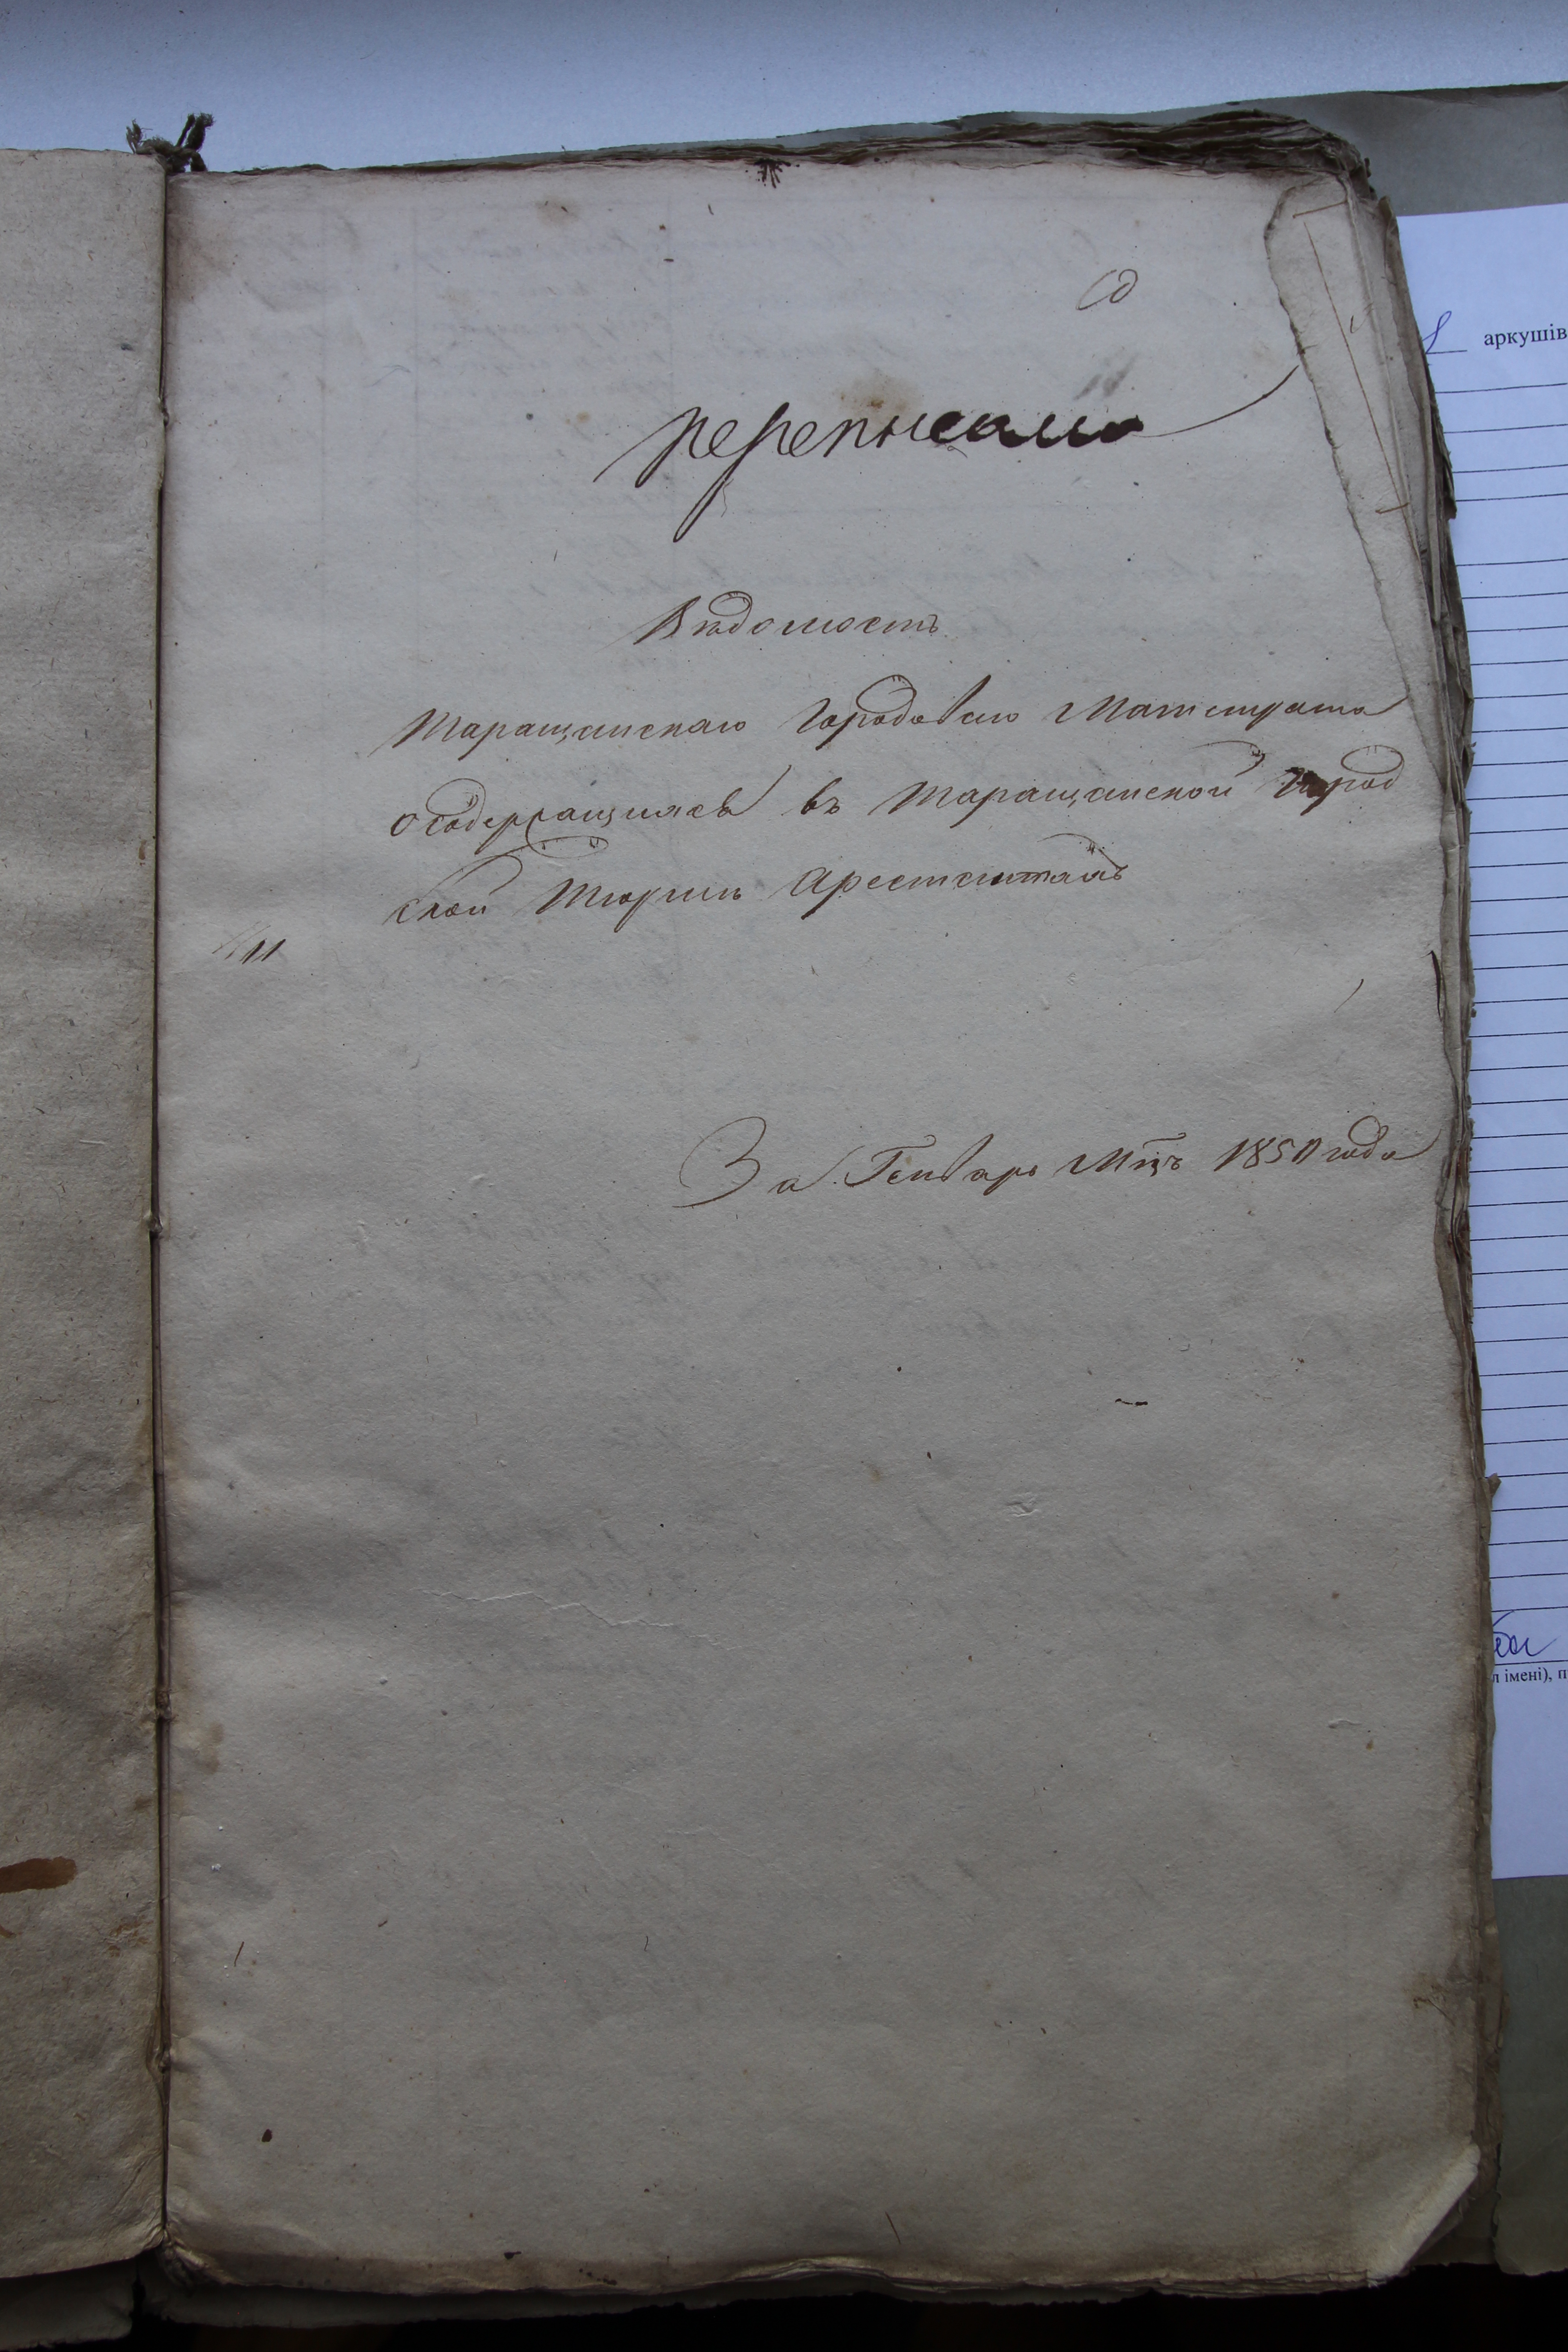 аркушів
переписать
Вѣдомость
Таращанскаго Городоваго Магистрата
о содержащихся въ Таращанской Город
ской Тюрмѣ Арестантахъ
За Генварь Мцъ 1850 года
л імені), п